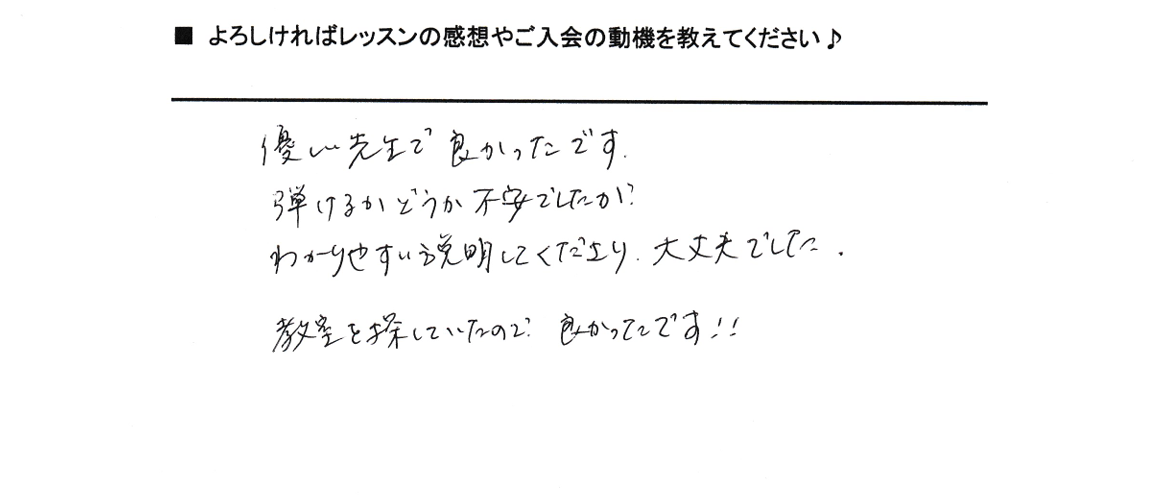 ■ よろしければレッスンの感想やご入会の動機を教えてください♪
優しい先生で良かったです.
弾けるかどうか不安でしたが、
わかりやすい説明してくださり、大丈夫でした.
教室を探していたので、良かったです!!